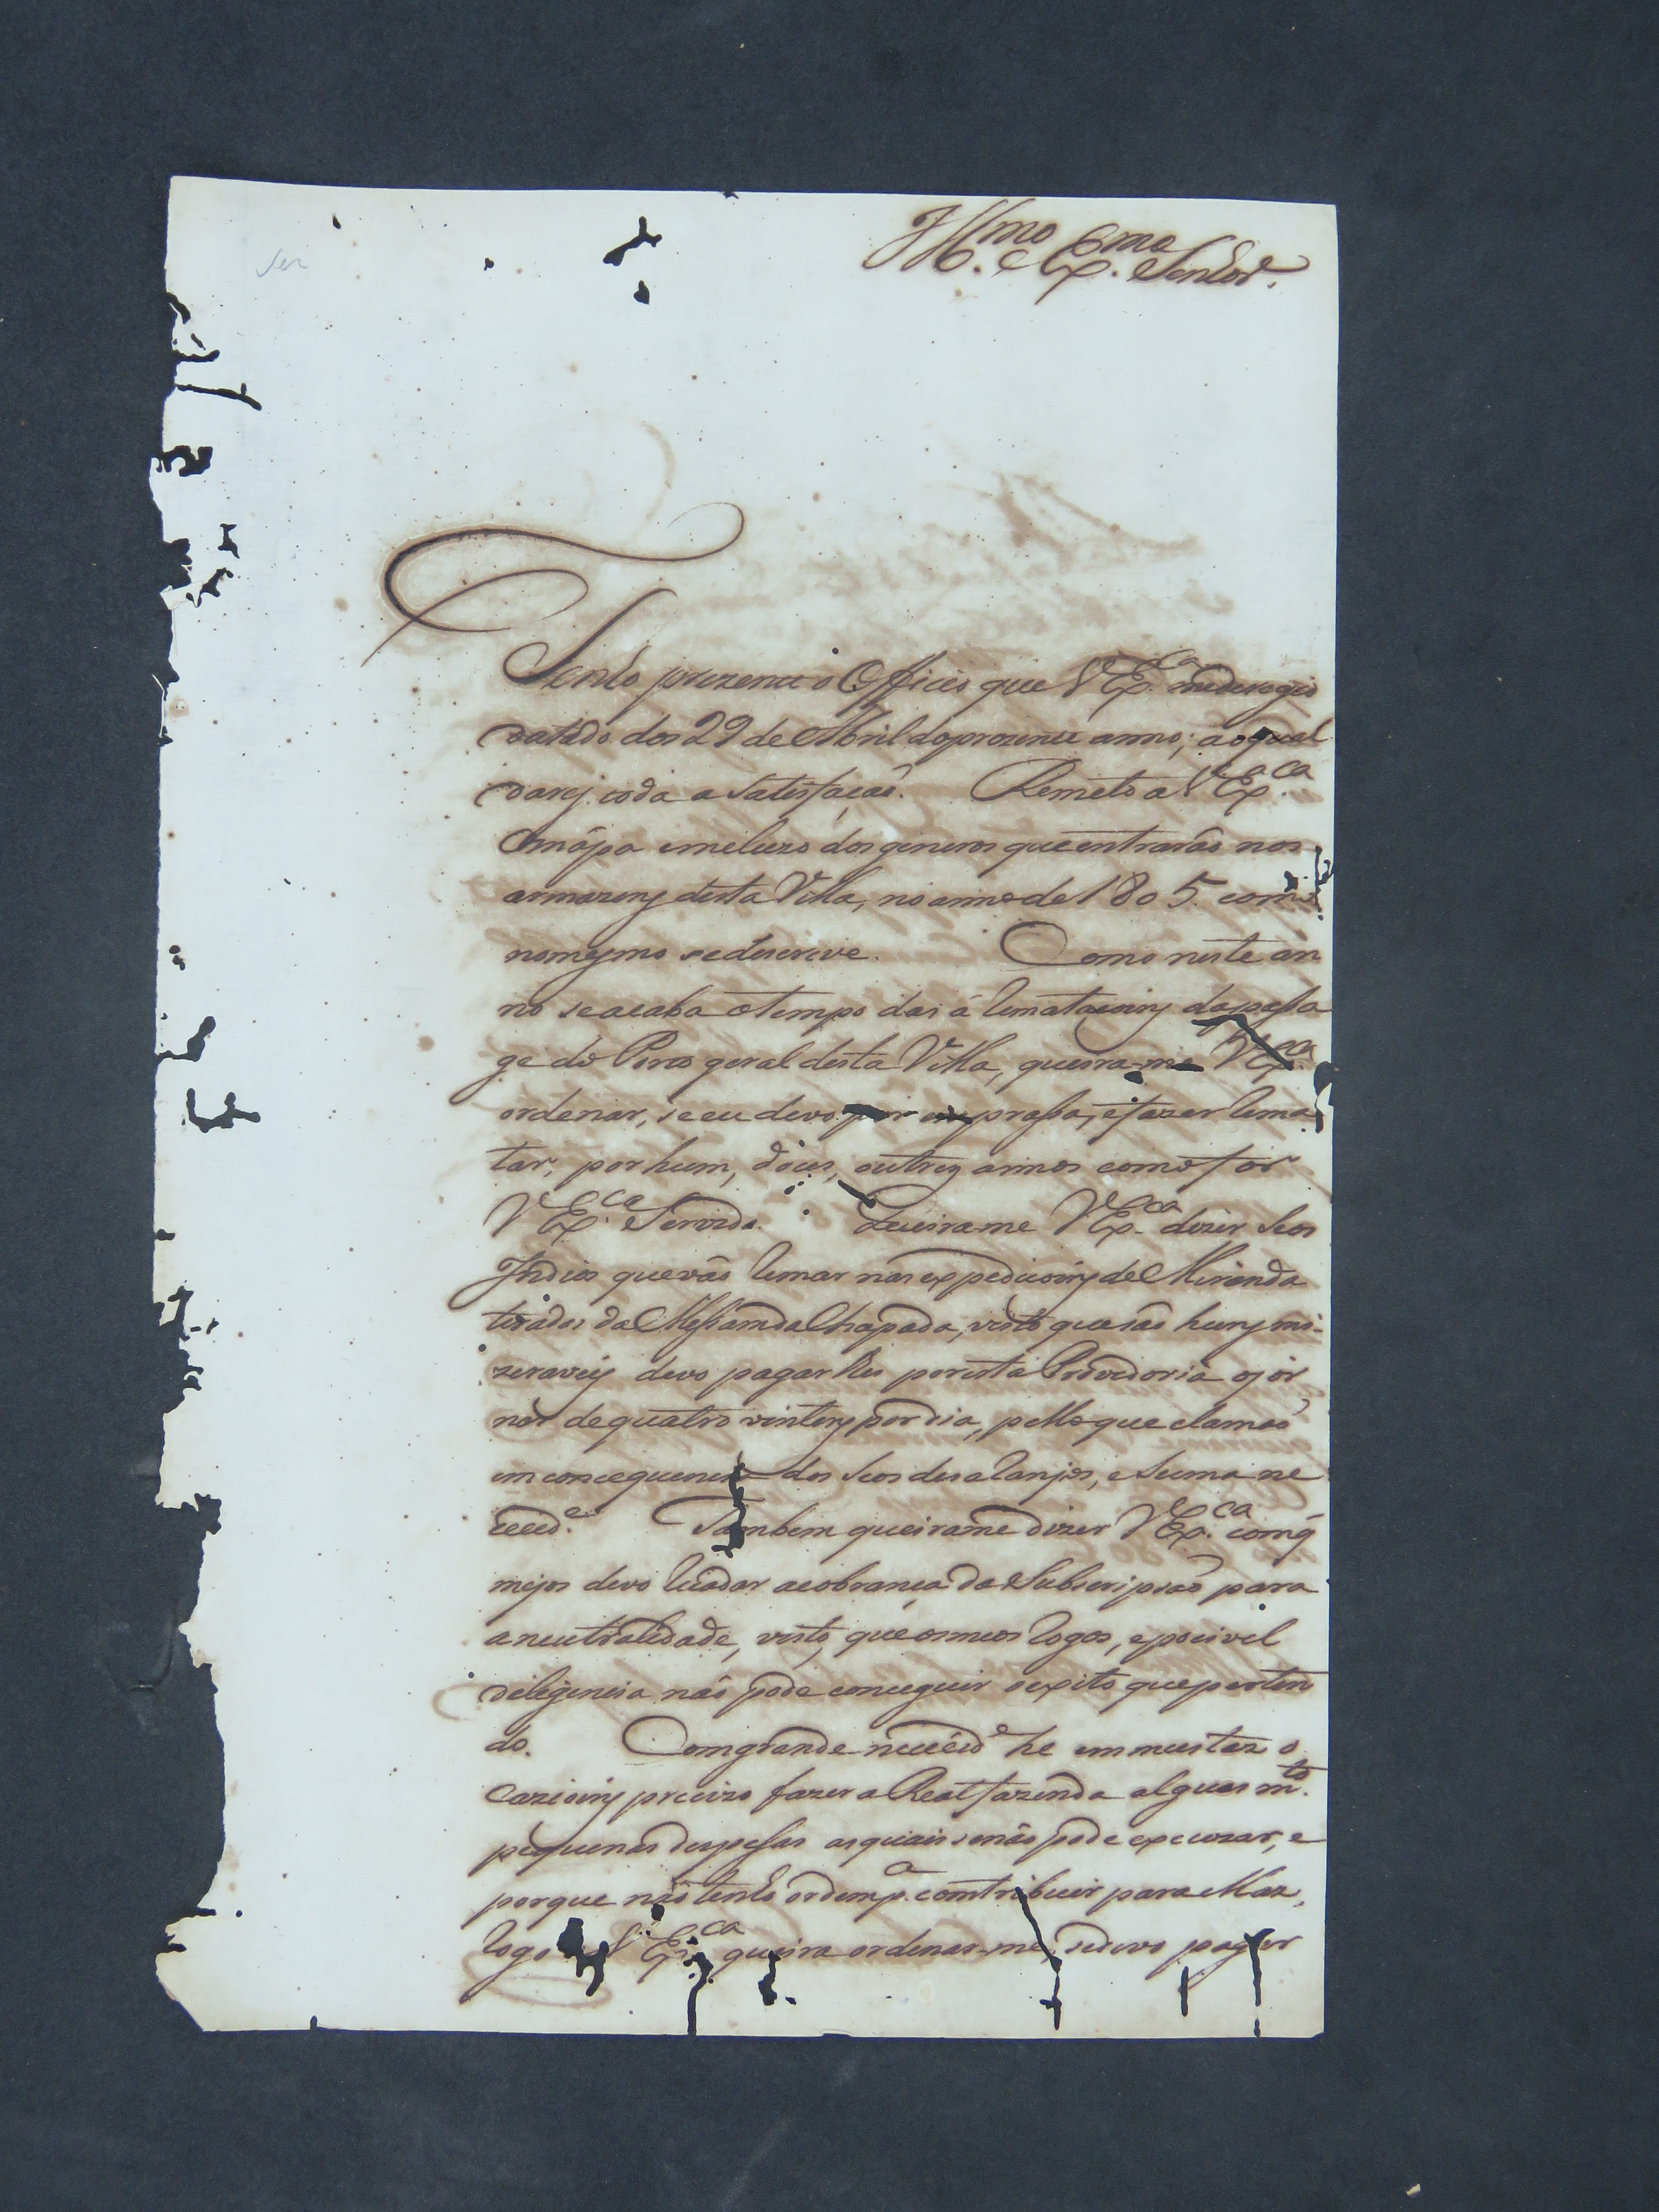 Ill.mo e Ex.mo Senhor.
Tenho prezente o Officio que V Ex.a me derogio
datado dos 29 de Abril do prozente anno; ao qual
darej toda a Satisfação. Remeto a V Ex.ca
o mápa incluzo dos generos que entrarão nos
armazens desta Villa, no anno de 1805. como
no mesmo se descreve. Como neste an
no se acaba o tempo das á Rematacoins da passa
ge do Porto geral desta Villa, queira-me V Ex.ca
ordenar, se eu devo por em prassa, e fazer Rema
tar, por hum, dois, ou trez annos como for
V Ex.ca Servido. Queirame V Ex.ca dizer Se os
Indios que vão Remar nas expedicoins de Miranda
tirados da Missam da Chapada, visto que são huns mi-
zeraveis devo pagar lhes por esta Provedoria o jor
nál de quatro vintens por dia, pello que clamão
em consequencia dos Seos desalanjos, e Suma ne
cecid.e Tambem queirame dizer V Ex.ca com q
meios devo a cobrança da Subscripsão para
a neutralidade, visto, que os meos Rogos, e pocivel
deligencia não pode conceguir o exito que perten
do. Com grande nececid.e he em muitas o
cazioins precizo fazer a Real fazenda alguas m.to
pequenas despessas as quais se não pode excuzar, e
porque não tenho ordem p.a comtribuir para Mas,
Rogo a V Ex.ca queira ordenar-me, se devo pagar